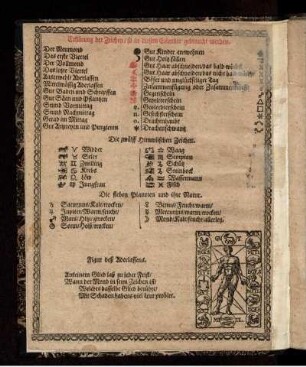 Erklärung der Zeichen / so in diesem Calender gebraucht werden.
Der Newmond
Das erste Viertel
Der Vollmond
Das letzte Viertel
Außerwehlt Aderlassen
Mittelmässig Aderlassen
Gut Baden und Schrepffen
Gut Säen und Pflantzen
Stund Vormittag
Stund Nachmittag
Grad im Mittag
Gut Artzneyen und Purgieren
Gut Kinder entwehnen
Gut Holtz fällen
Gut Haar abschneiden das bald wächst
Gut Haar abschneiden das nicht bald wächst
Böser und unglückseliger Tag
Zusammenfügung oder Zusammenkunfft
Gegenschein
Gevierdterschein
Gedritterschein
Gesechsterschein
Drachenhaupt
Drachenschwantz
Die zwölff Himmlischen Zeichen.
Wider
Stier
Zwilling
Krebs
Löw
Jungfraw
Waag
Scorpion
Schütz
Steinbock
Wasserman
Fisch
Die sieben Planeten und ihre Natur.
Saturnus / Kalt trocken /
Jupiter / Warm feucht /
Mars / Hitzig trocken /
Sonn / Heiß trocken /
Venus / Feucht warm /
Mercurius / warm trocken /
Mond / Kalt feucht allezeit.
Figur deß Aderlassens.
Under mein Glied laß zu jeder Frist /
Wann der Mond in seim Zeichen ist /
Welches dasselbe Glied berührt /
Mit Schaden habens viel Leut probirt.